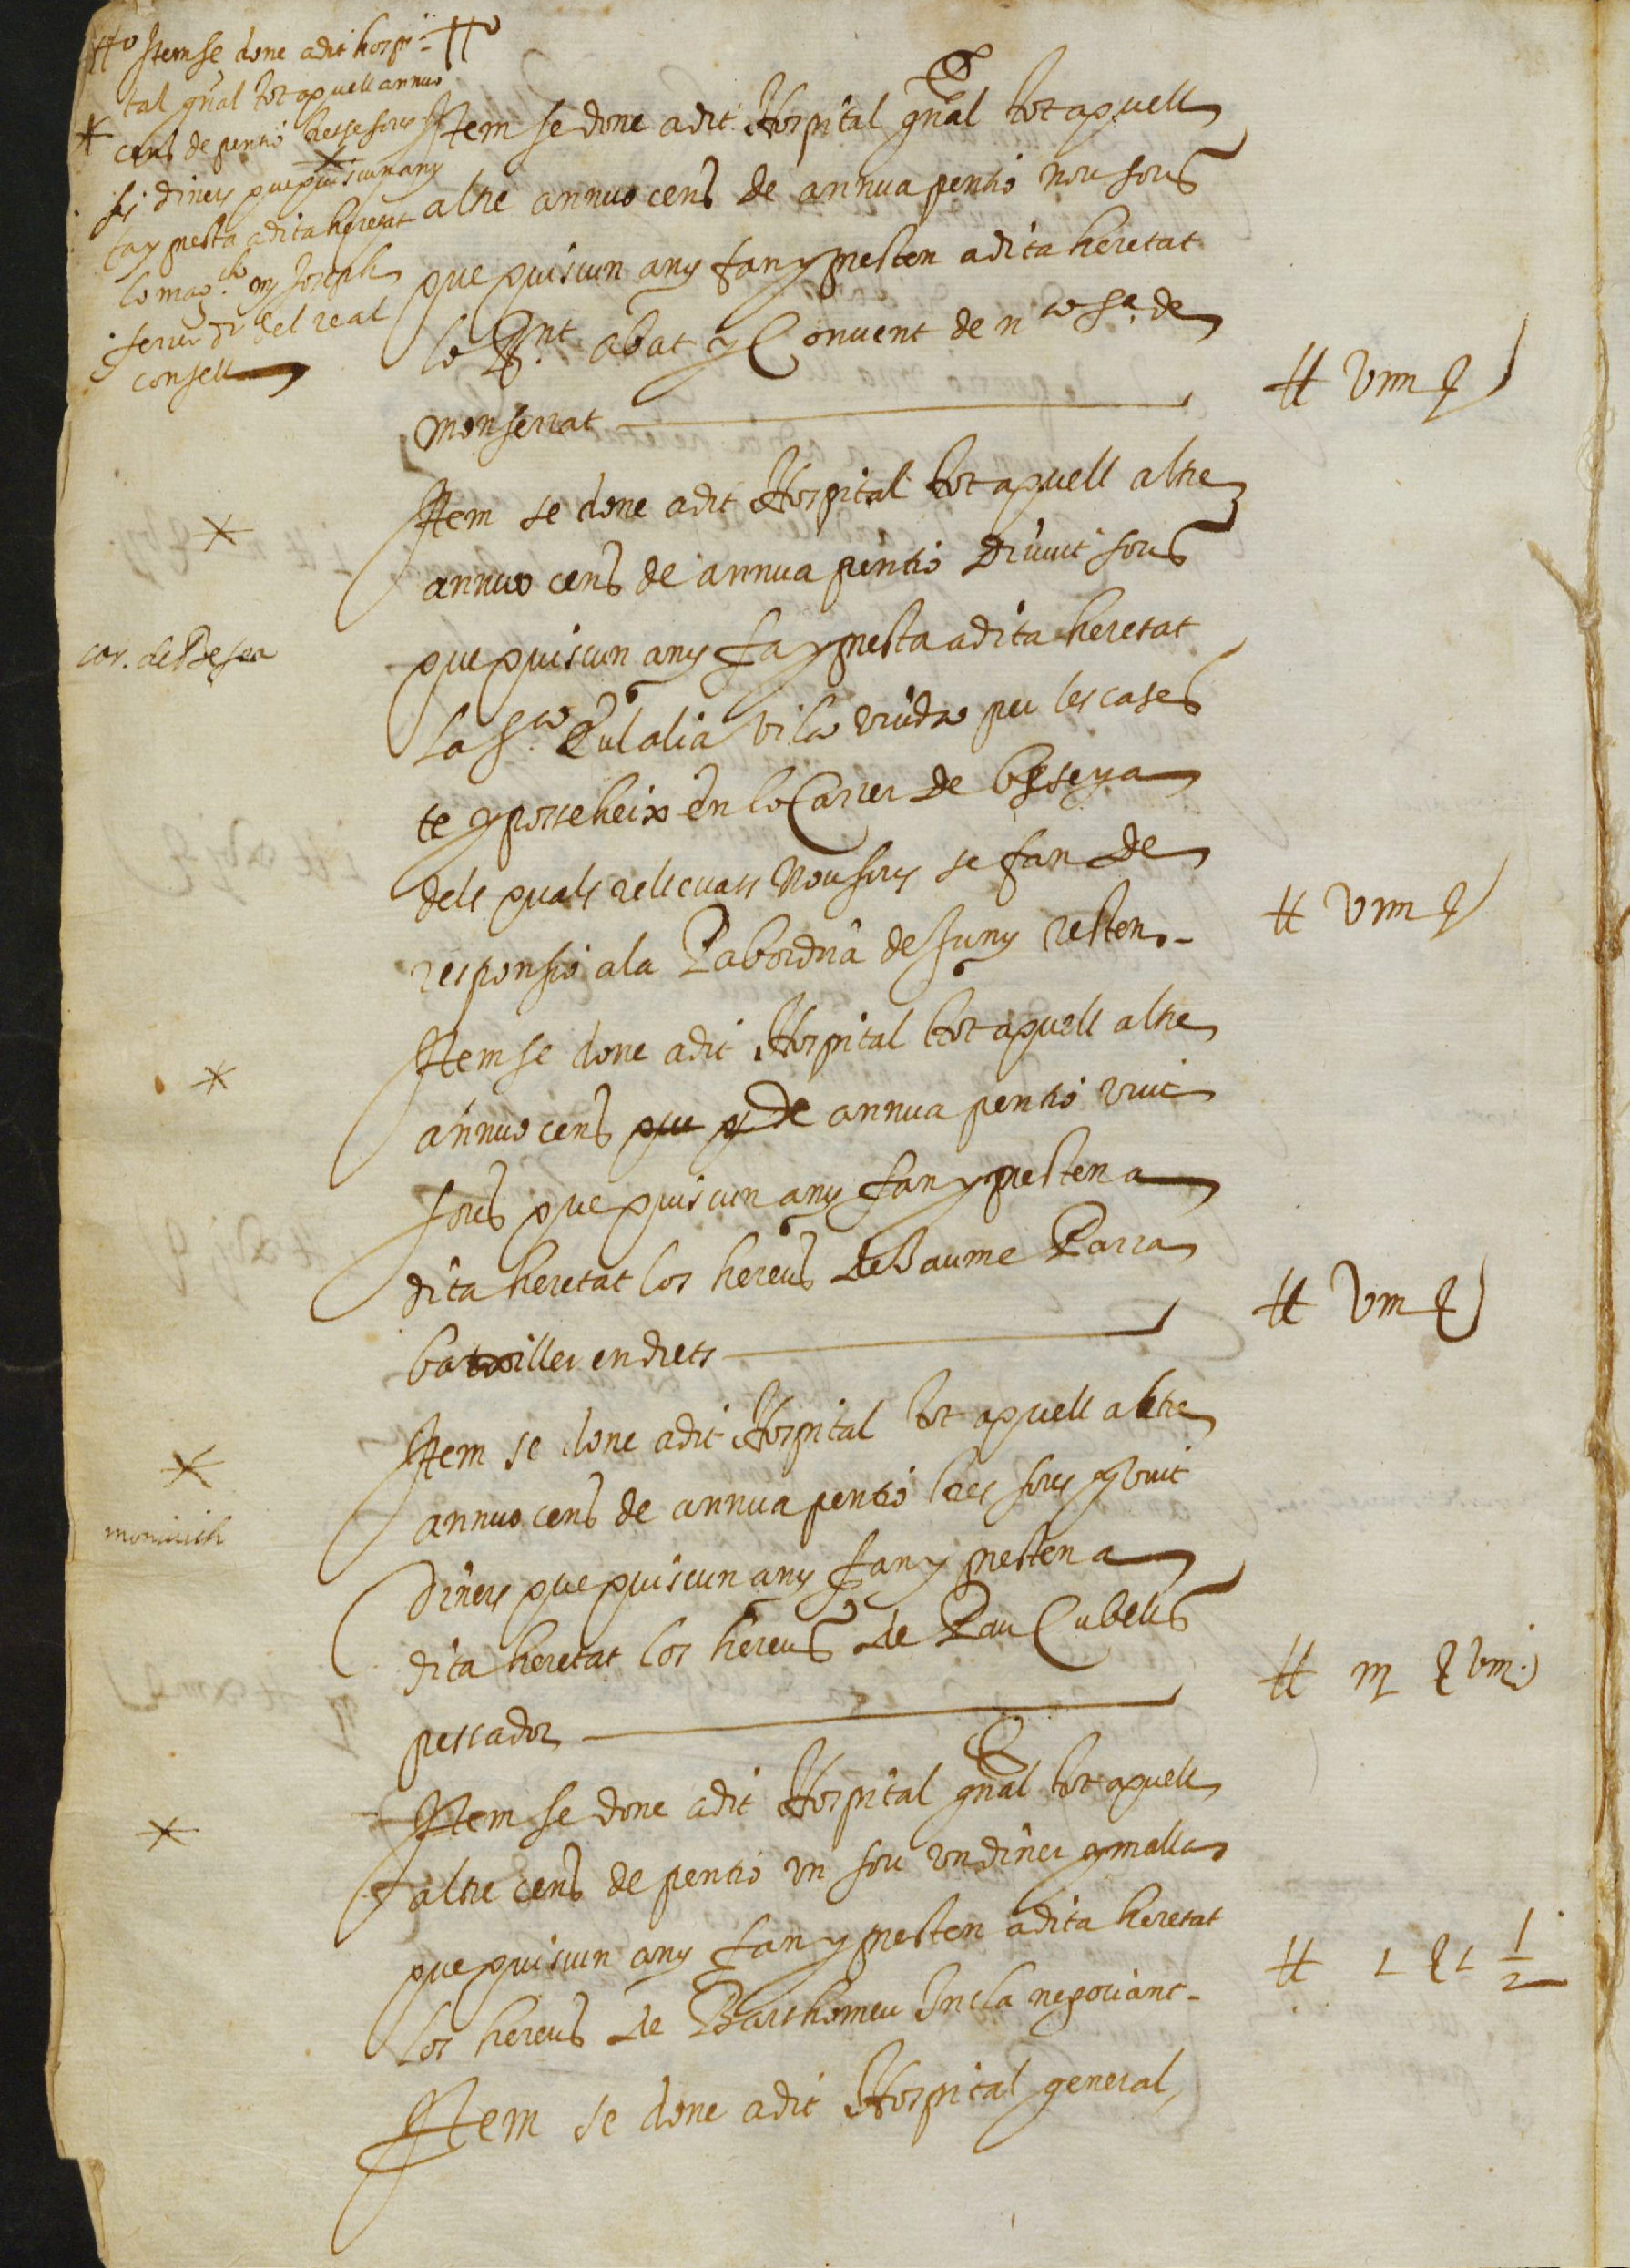 Item se done a dit hospi-
tal gñal tot aquell annuo
cens de pentio tretse sous
sis diners que quiscun any
fa y presta a dita heretat
lo mag.ch mº Joseph
ferrer dr del real
consell
Item se done a dit Hospital gñal tot aquell
altre annuo cens de annua pentio nou sous
que quiscun any fan y presten a dita heretat
lo R.nt abat y Convent de nra Sa. de
monserrat
# VIIII ß
Item se done a dit Hospital tot aquell altre
annuo cens de annua pentio divuit sous
que quiscun any fa y presta a dita heretat
car. de Besea
la Sra. Eulalia vila viuda per les cases
te y posseheix en lo Carrer de besseya
dels quals rellevats nou sous se fan de
responsio a la Pabordria de Juny resten
# VIIII ß
Item se done a dit Hospital tot aquell altre
annuo cens que y de annua pentio vuit
sous que quiscun any fan y presten a
dita heretat los hereus de Jaume Parra
batxiller en drets
# VIII ß
Item se done a dit Hospital tot aquell altre
annuo cens de annua pentio tres sous y vuit
monjuich
diners que quiscun any fan y presten a
dita heretat los hereus de Pau Cubells
pescador
# III ß VIII
Item se done a dit Hospital gñal tot aquell
altre cens de pentio un sou un diner y malla
que quiscun any fan y presten a dita heretat
los hereus de Barthomeu Incla negociant
# 1 ß 1 1/2
Item se done a dit Hospital general